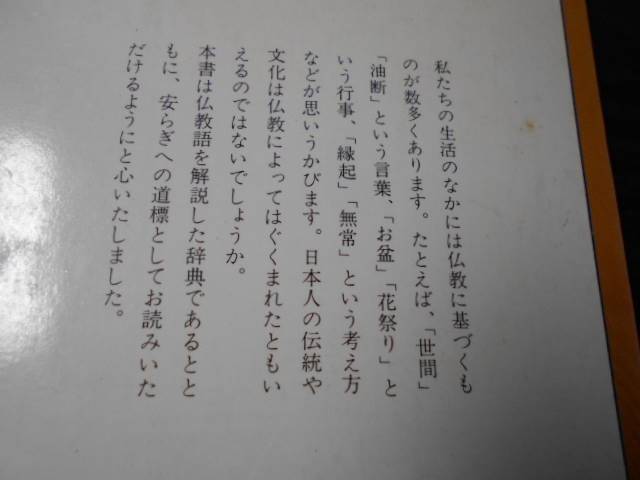 私たちの生活のなかには仏教に基づくも
のが数多くあります。たとえば、「世間」
「油断」という言葉、「お盆」「花祭り」と
いう行事、「縁起」「無常」という考え方
などが思いうかびます。日本人の伝統や
文化は仏教によってはぐくまれたともい
えるのではないでしょうか。
本書は仏教語を解説した辞典であるとと
もに、安らぎへの道標としてお読みいた
だけるようにと心いたしました。